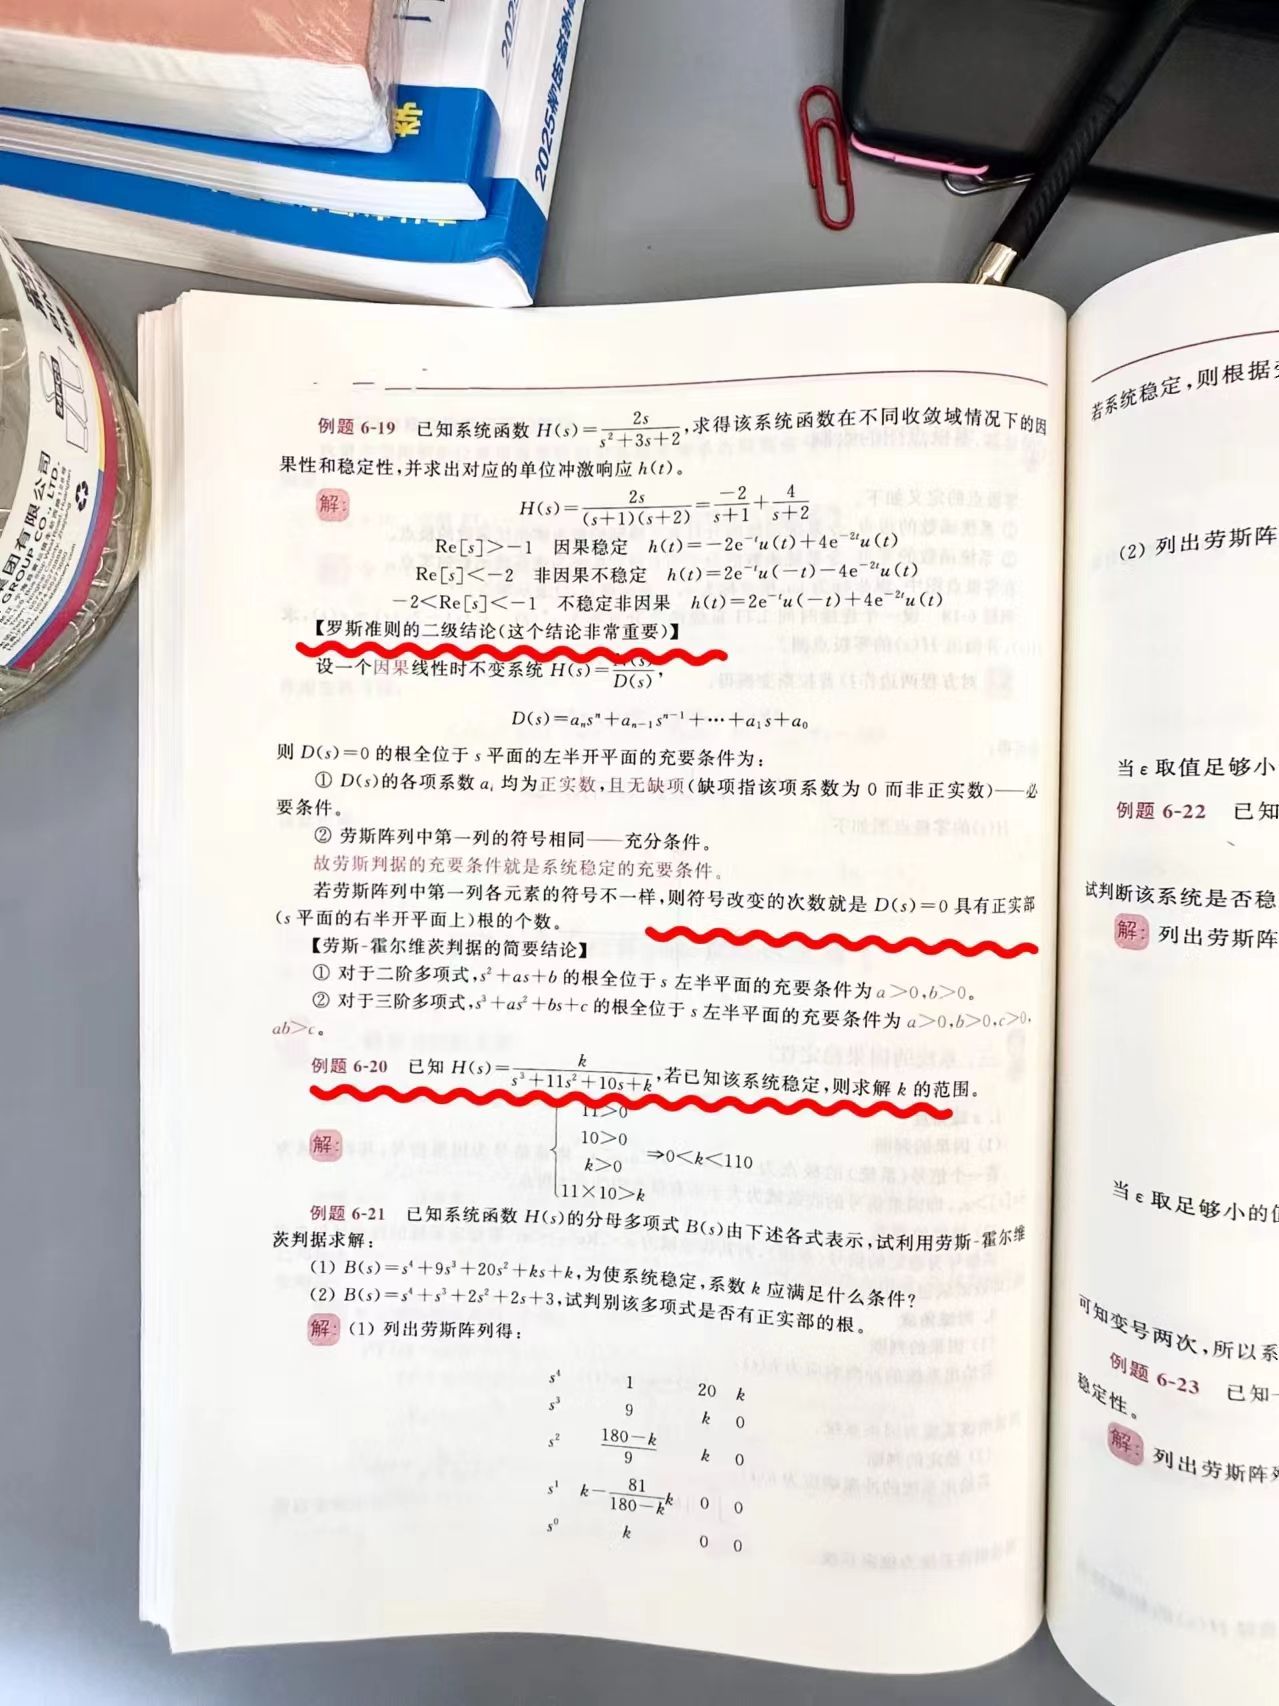 2025
集团有限公司
GROUP CO., LTD.
例题 6-19 已知系统函数 H(s)=2s/(s²+3s+2),求得该系统函数在不同收敛域情况下的因
果性和稳定性,并求出对应的单位冲激响应 h(t)。
解: H(s)=2s/((s+1)(s+2))=-2/(s+1)+4/(s+2)
Re[s]>-1 因果稳定 h(t)=-2e⁻ᵗu(t)+4e⁻²ᵗu(t)
Re[s]<-2 非因果不稳定 h(t)=2e⁻ᵗu(-t)-4e⁻²ᵗu(t)
-2<Re[s]<-1 不稳定非因果 h(t)=2e⁻ᵗu(-t)+4e⁻²ᵗu(t)
【罗斯准则的二级结论(这个结论非常重要)】
设一个因果线性时不变系统 H(s)=N(s)/D(s),
D(s)=aₙsⁿ+aₙ₋₁sⁿ⁻¹+⋯+a₁s+a₀
则 D(s)=0 的根全位于 s 平面的左半开平面的充要条件为:
① D(s)的各项系数 aᵢ 均为正实数,且无缺项(缺项指该项系数为 0 而非正实数)——必
要条件。
② 劳斯阵列中第一列的符号相同——充分条件。
故劳斯判据的充要条件就是系统稳定的充要条件。
若劳斯阵列中第一列各元素的符号不一样,则符号改变的次数就是 D(s)=0 具有正实部
(s 平面的右半开平面上)根的个数。
【劳斯-霍尔维茨判据的简要结论】
① 对于二阶多项式,s²+as+b 的根全位于 s 左半平面的充要条件为 a>0,b>0。
② 对于三阶多项式,s³+as²+bs+c 的根全位于 s 左半平面的充要条件为 a>0,b>0,c>0,
ab>c。
例题 6-20 已知 H(s)=k/(s³+11s²+10s+k),若已知该系统稳定,则求解 k 的范围。
11>0
10>0
解: k>0 ⇒0<k<110
11×10>k
例题 6-21 已知系统函数 H(s)的分母多项式 B(s)由下述各式表示,试利用劳斯-霍尔维
茨判据求解:
(1) B(s)=s⁴+9s³+20s²+ks+k,为使系统稳定,系数 k 应满足什么条件?
(2) B(s)=s⁴+s³+2s²+2s+3,试判别该多项式是否有正实部的根。
解: (1) 列出劳斯阵列得:
s⁴ 1 20 k
s³ 9 k 0
s² (180-k)/9 k 0
s¹ k-81/(180-k)k 0 0
s⁰ k 0 0
若系统稳定,则根据
(2) 列出劳斯阵
当 ε 取值足够小
例题 6-22 已知
试判断该系统是否稳
解: 列出劳斯阵
当 ε 取足够小的值
可知变号两次,所以系
例题 6-23 已知一
稳定性。
解: 列出劳斯阵列